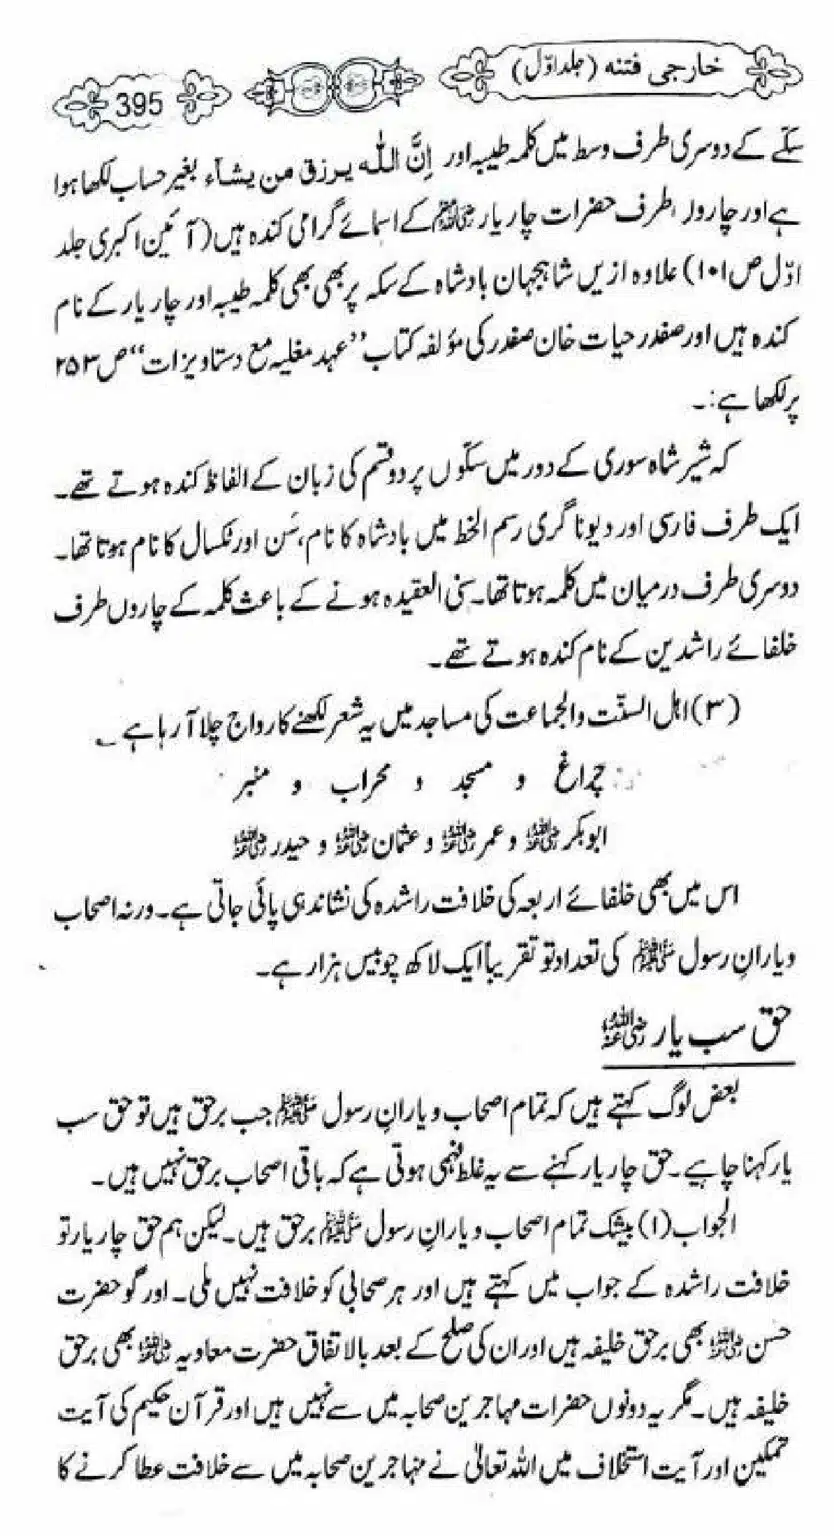 خارجی فتنہ (جلد اوّل)
395
سکّے کے دوسری طرف وسط میں کلمہ طیبہ اور اِنَّ اللّٰہ یرزق من یشآء بغیر حساب لکھا ہوا
ہے اور چاروں طرف حضرات چار یار ﷺ کے اسمائے گرامی کندہ ہیں (آئین اکبری جلد
اوّل ص ۱۰۱) علاوہ ازیں شاہجہان بادشاہ کے سکہ پر بھی بھی کلمہ طیبہ اور چار یار کے نام
کندہ ہیں اور صفدر حیات خان صفدر کی مؤلفہ کتاب ’’عہد مغلیہ مع دستاویزات‘‘ ص ۲۵۳
پر لکھا ہے:۔
کہ شیر شاہ سوری کے دور میں سکّوں پر دو قسم کی زبان کے الفاظ کندہ ہوتے تھے۔
ایک طرف فارسی اور دیوناگری رسم الخط میں بادشاہ کا نام، سَن اور ٹکسال کا نام ہوتا تھا۔
دوسری طرف درمیان میں کلمہ ہوتا تھا۔ سُنی العقیدہ ہونے کے باعث کلمہ کے چاروں طرف
خلفائے راشدین کے نام کندہ ہوتے تھے۔
(۳) اہل السنّت والجماعت کی مساجد میں یہ شعر لکھنے کا رواج چلا آ رہا ہے ۔
چراغ و مسجد و محراب و منبر
ابوبکر رضی اللہ عنہ و عمر رضی اللہ عنہ و عثمان رضی اللہ عنہ و حیدر رضی اللہ عنہ
اس میں بھی خلفائے اربعہ کی خلافت راشدہ کی نشاندہی پائی جاتی ہے۔ ورنہ اصحاب
و یارانِ رسول ﷺ کی تعداد تو تقریباً ایک لاکھ چوبیس ہزار ہے۔
حق سب یار رضی اللہ عنہ
بعض لوگ کہتے ہیں کہ تمام اصحاب و یارانِ رسول ﷺ جب برحق ہیں تو حق سب
یار کہنا چاہیے۔ حق چار یار کہنے سے یہ غلط فہمی ہوتی ہے کہ باقی اصحاب برحق نہیں ہیں۔
الجواب (۱) بیشک تمام اصحاب و یارانِ رسول ﷺ برحق ہیں۔ لیکن ہم حق چار یار تو
خلافت راشدہ کے جواب میں کہتے ہیں اور ہر صحابی کو خلافت نہیں ملی۔ اور گو حضرت
حسن رضی اللہ عنہ بھی برحق خلیفہ ہیں اور ان کی صلح کے بعد بالاتفاق حضرت معاویہ رضی اللہ عنہ بھی برحق
خلیفہ ہیں۔ مگر یہ دونوں حضرات مہاجرین صحابہ میں سے نہیں ہیں اور قرآن حکیم کی آیت
تمکین اور آیت استخلاف میں اللہ تعالیٰ نے مہاجرین صحابہ میں سے خلافت عطا کرنے کا